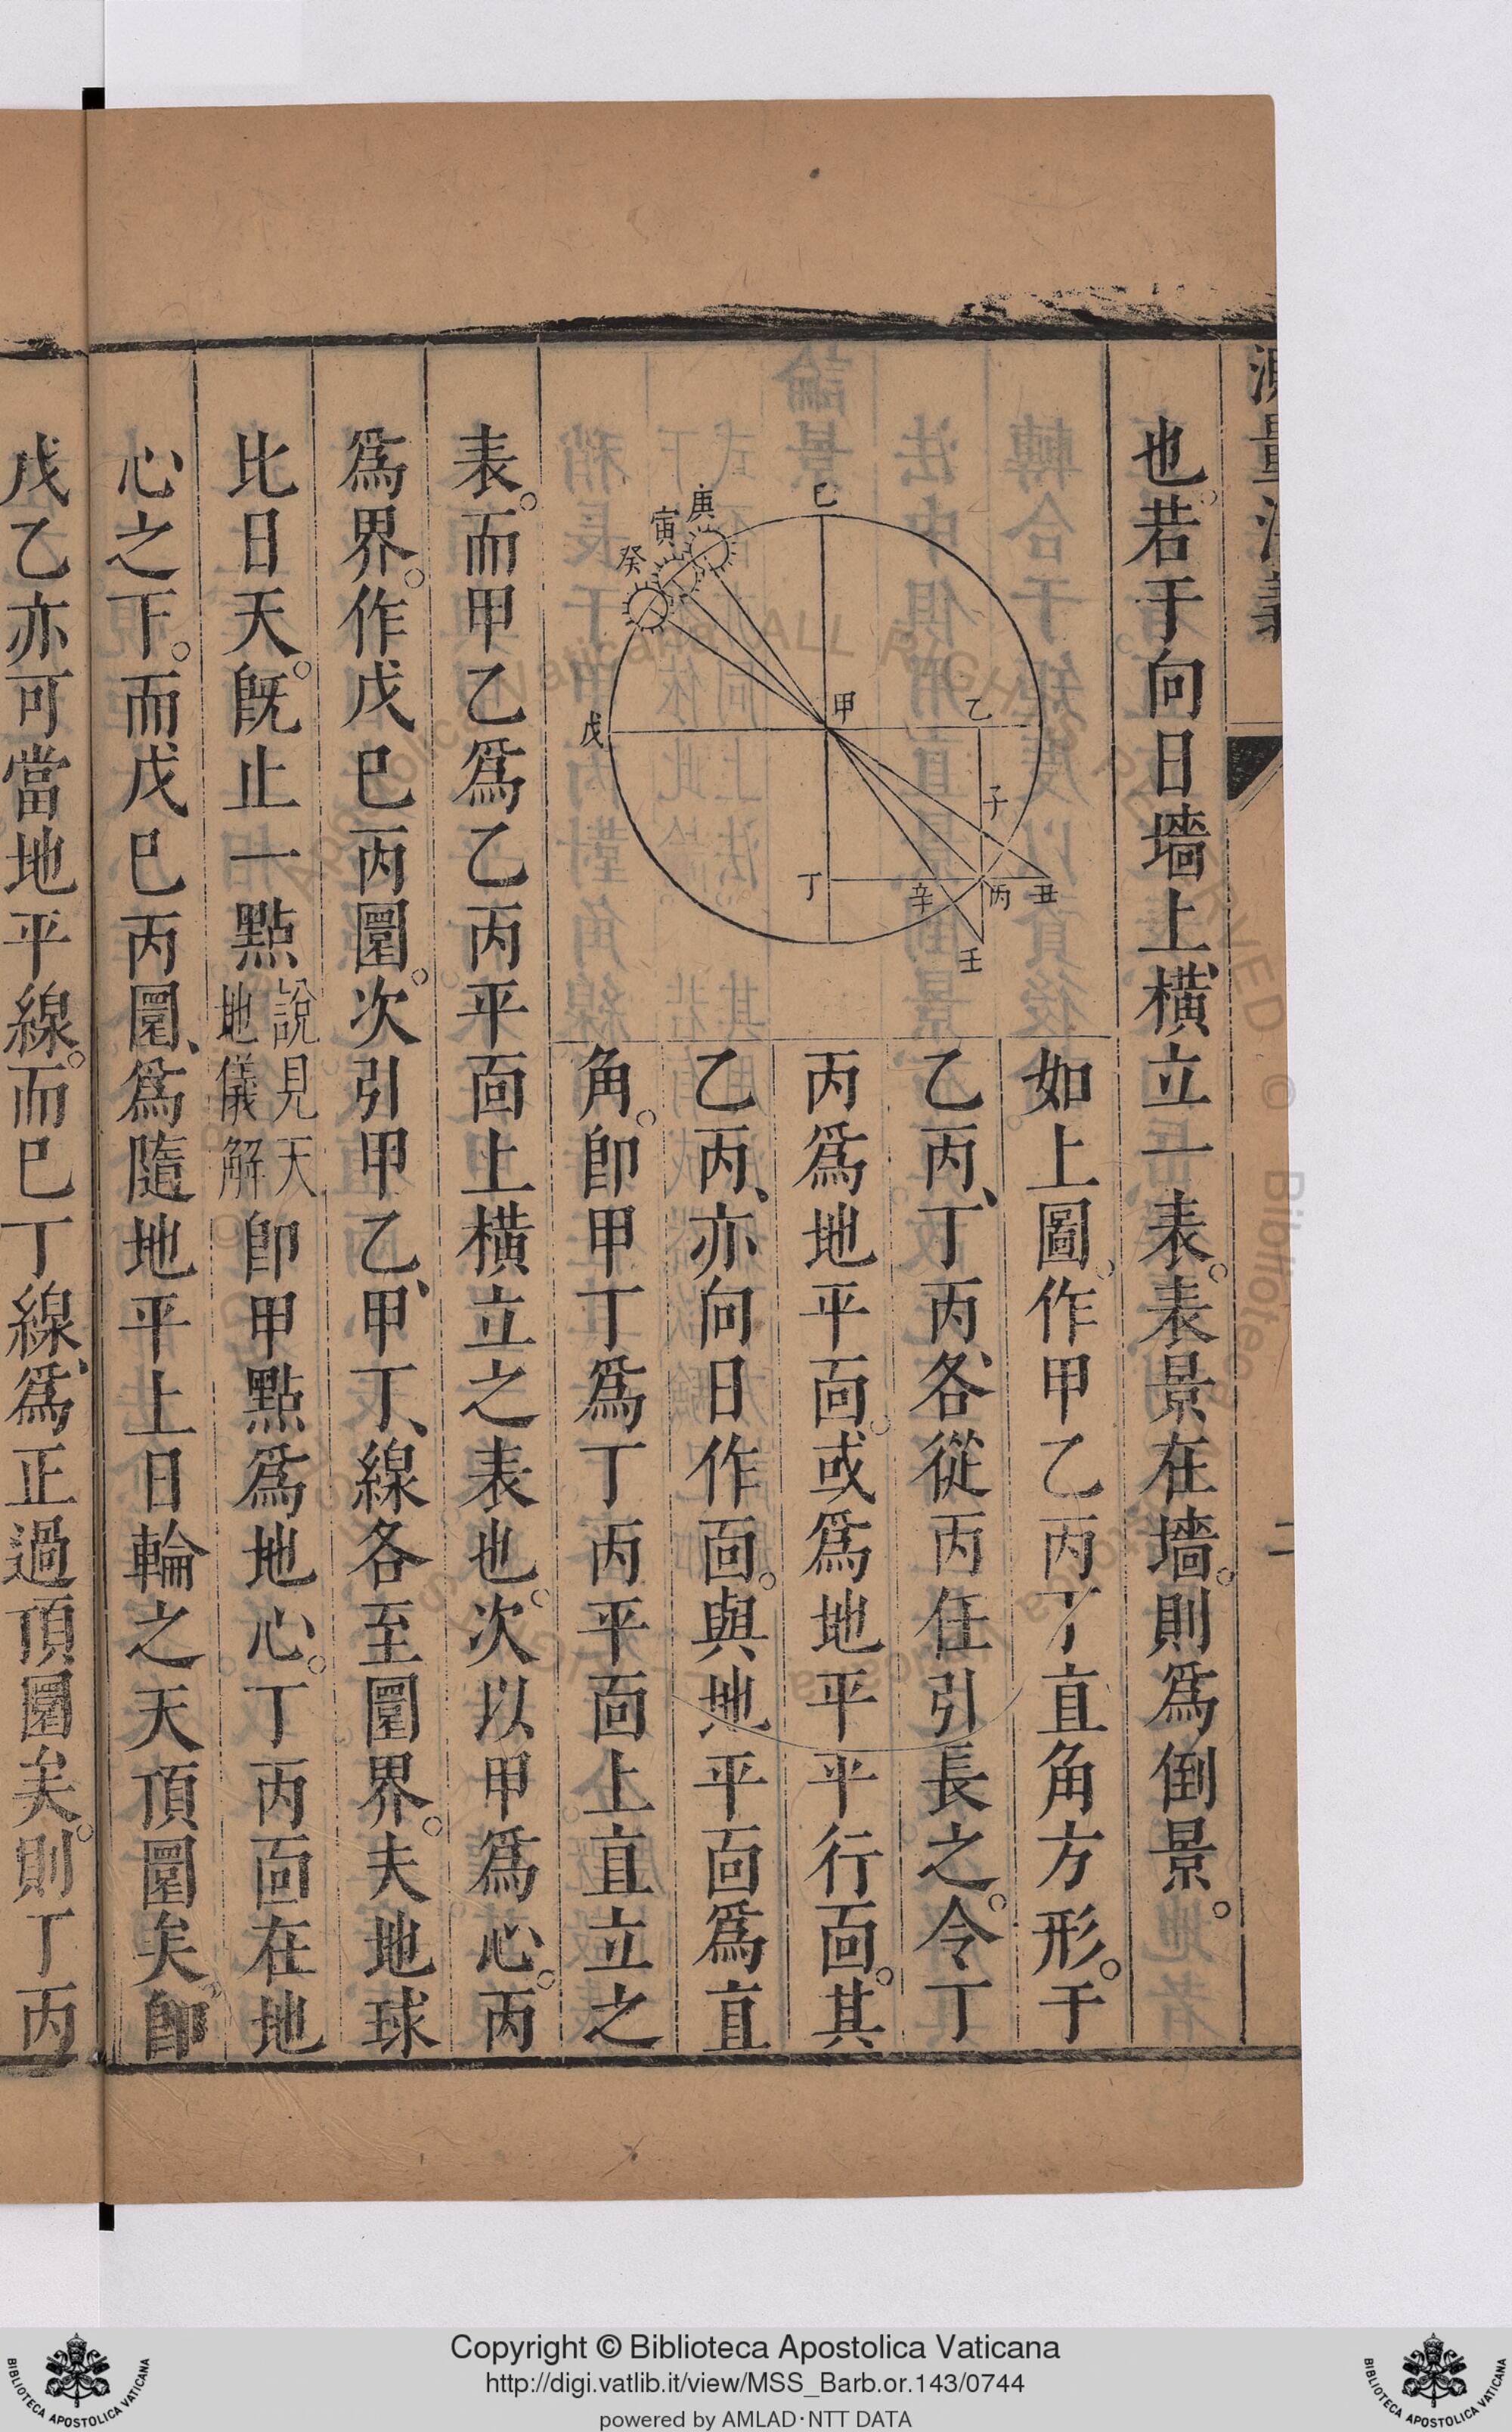 也。若于向日墻上、橫立一表。表景在墻。則爲倒景。
如上圖。作甲乙丙丁直角方形。于
乙丙、丁丙、各從丙任引長之。令丁
丙爲地平面。或爲地平平行面。其
乙丙、亦向日作面。與地平面爲直
角。卽甲丁爲丁丙平面上直立之
表。而甲乙爲乙丙平面上橫立之表也。次以甲爲心。丙
爲界。作戊己丙圜。次引甲乙、甲丁、線各至圜界。夫地球
比日天。旣止一點說見天地儀解卽甲點爲地心。丁丙面在地
心之下。而戊己丙圜、爲隨地平上日輪之天頂圜矣。卽
戊乙亦可當地平線。而已丁線、爲正過頂圜矣。則丁丙
己
庚
寅
癸
甲
乙
戊
子
丁
辛
丙
丑
壬
測量法義
二
Copyright © Biblioteca Apostolica Vaticana
http://digi.vatlib.it/view/MSS_Barb.or.143/0744
powered by AMLAD·NTT DATA
BIBLIOTECA APOSTOLICA VATICANA
BIBLIOTECA APOSTOLICA VATICANA